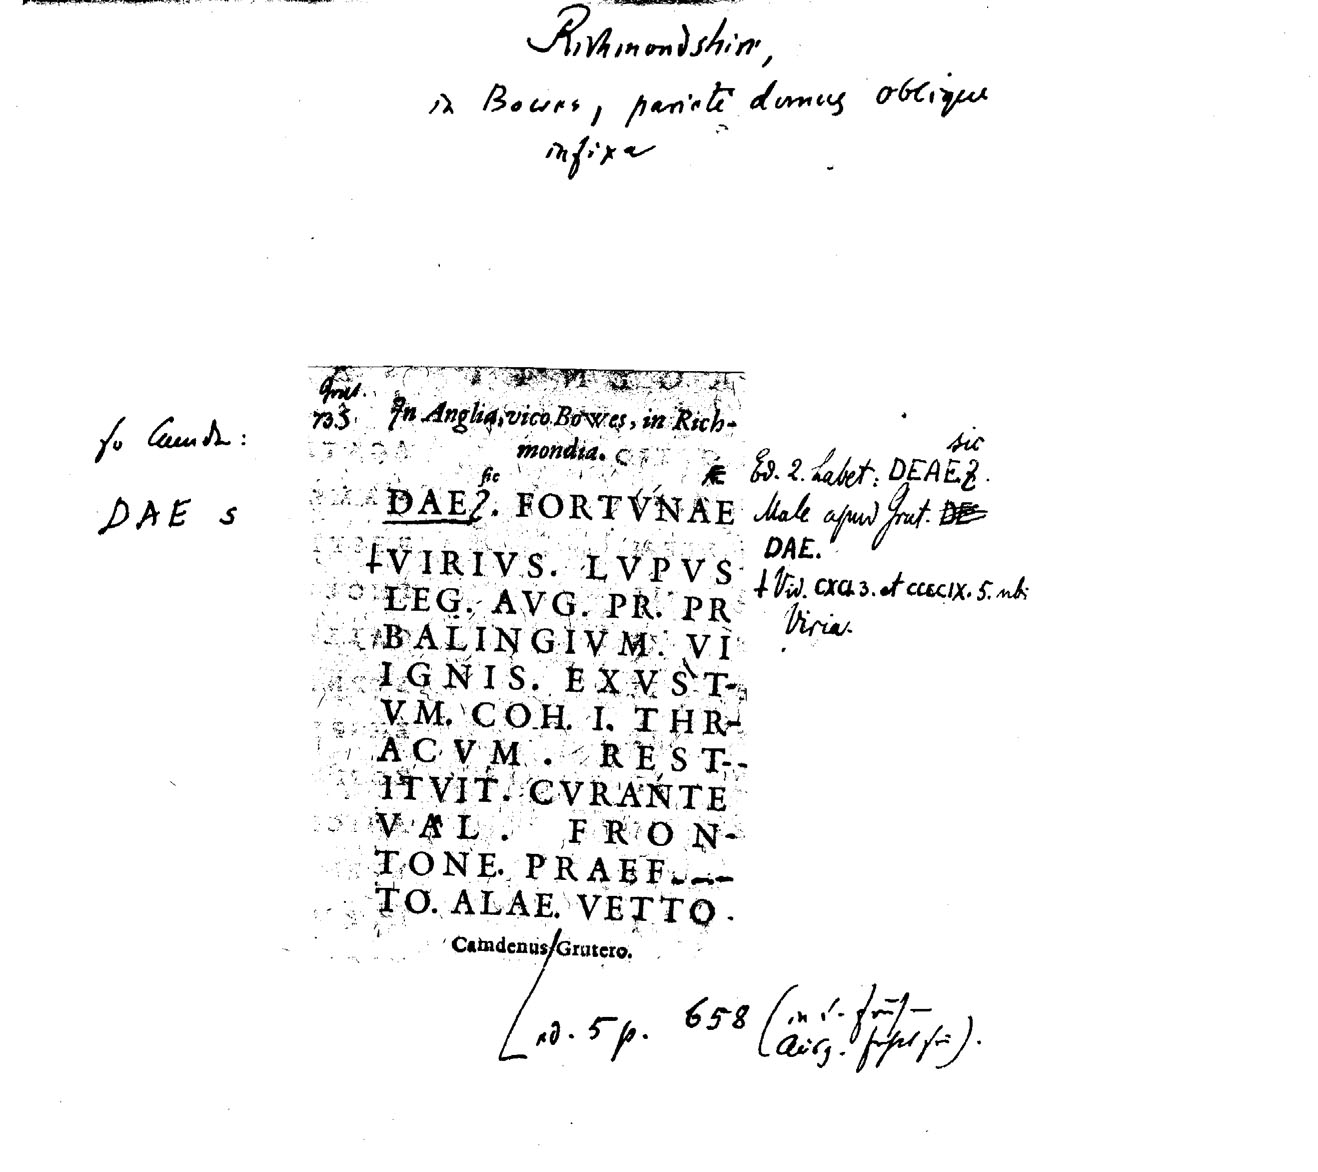 Richmondshire,
in Bowes, pariete domus oblique
infixa
Grut.
73 5.
In Anglia, vico Bowes, in Rich-
mondia.
so Camdn:
DAE S
sic
DAEƧ. FORTVNAE
VIRIVS. LVPVS
LEG. AVG. PR. PR
BALINGIVM. VI
IGNIS. EXVST-
VM. COH. I. THR-
ACVM. REST--
ITVIT. CVRANTE
VAL. FRON-
TONE. PRAEF----
TO. ALAE. VETTO.
Camdenus Grutero.
sic
Ed. 2. habet: DEAEƧ.
Male apud Grut. DE
DAE.
† Vid. CXCI. 3. et CCCCIX. 5. ubi
Viria.
ed. 5 p. 658 (in d.
Ausg. fehlt sie).